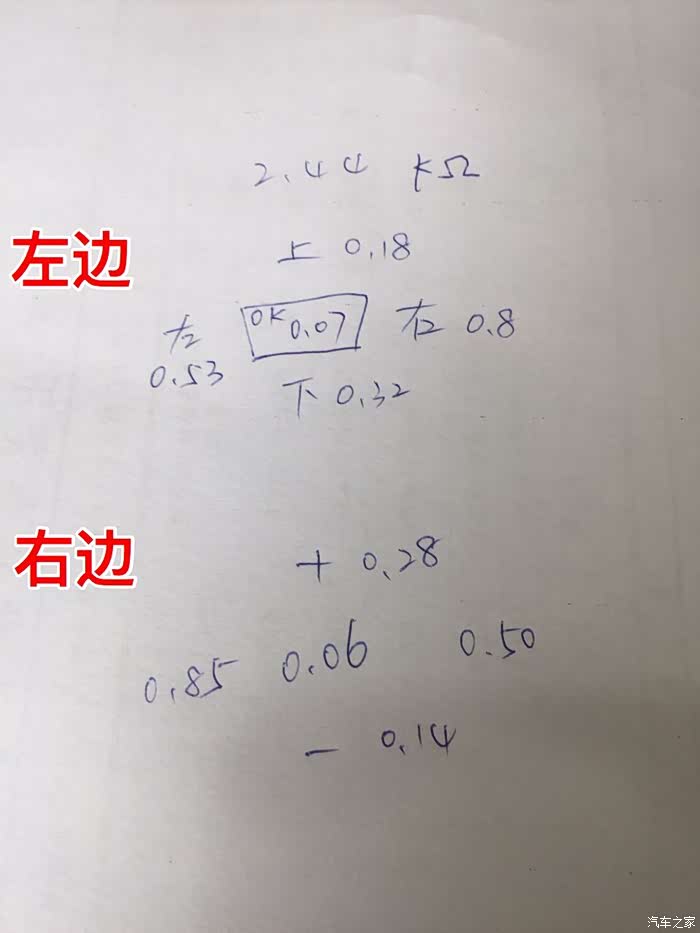 2.44 kΩ
左边
上 0.18
左 OK 0.07 右 0.8
0.53
下 0.32
右边
+ 0.28
0.85 0.06 0.50
- 0.14
汽车之家